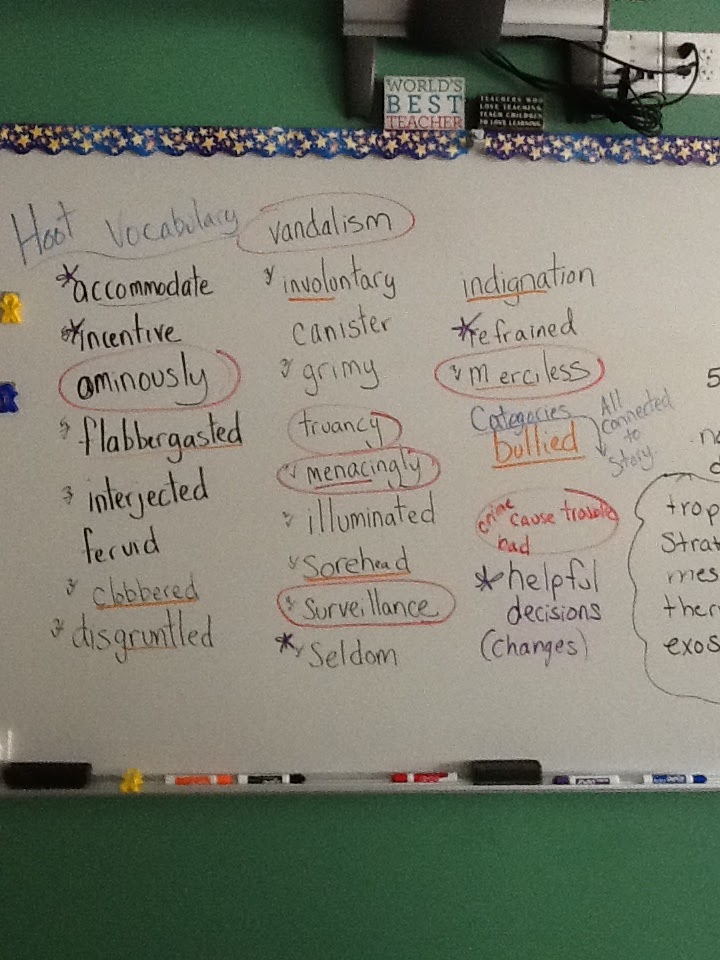 WORLD'S
BEST
TEACHER
TEACHERS WHO
LOVE TEACHING,
TEACH CHILDREN
TO LOVE LEARNING.
Hoot Vocabulary
vandalism
accommodate
incentive
ominously
flabbergasted
interjected
fervid
clobbered
disgruntled
involontary
canister
grimy
truancy
menacingly
illuminated
Sorehead
Surveillance
Seldom
indignation
refrained
merciless
Categories
All
connected
to
Story.
bullied
crime cause trouble
bad
helpful
decisions
(changes)
5
trop
Strat
mes
ther
exos